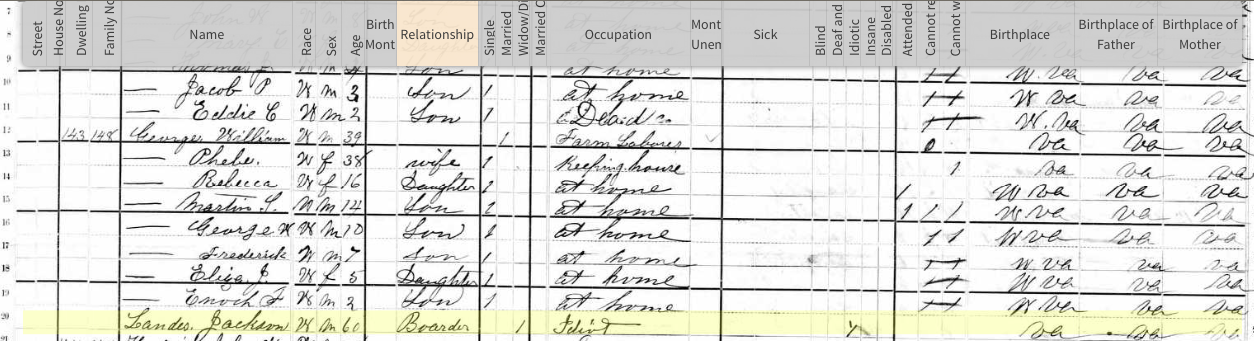 7
Street House No Dwelling Family No Name Race Sex Age Birth Mont Relationship Single Married Widow/Di Married C Occupation Mont Unen Sick Blind Deaf and Idiotic Insane Disabled Attended Cannot re Cannot w Birthplace Birthplace of Father Birthplace of Mother
8
9 Son at home W. va va va
10 — Jacob P W m 3 Son 1 at home W va va va
11 — Eddie C W m 2 Son 1 W. va va va
12 143 148 George William W m 39 1 Farm Laborer va va va
13 — Phebe. W f 38 wife 1 Keeping house 1 va va va
14 — Rebecca W f 16 Daughter 1 at home W va va va
15 — Martin S. W m 14 Son 1 at home 1 / / W. va va va
16 — George W W m 10 Son 1 at home W va va va
17 — Frederick W m 7 Son 1 at home W va va va
18 — Eliza J W f 5 Daughter 1 at home W va va va
19 — Enoch F W m 2 Son 1 at home W. va va va
20 Landes. Jackson W m 60 Boarder 1 Idiot va va va
21